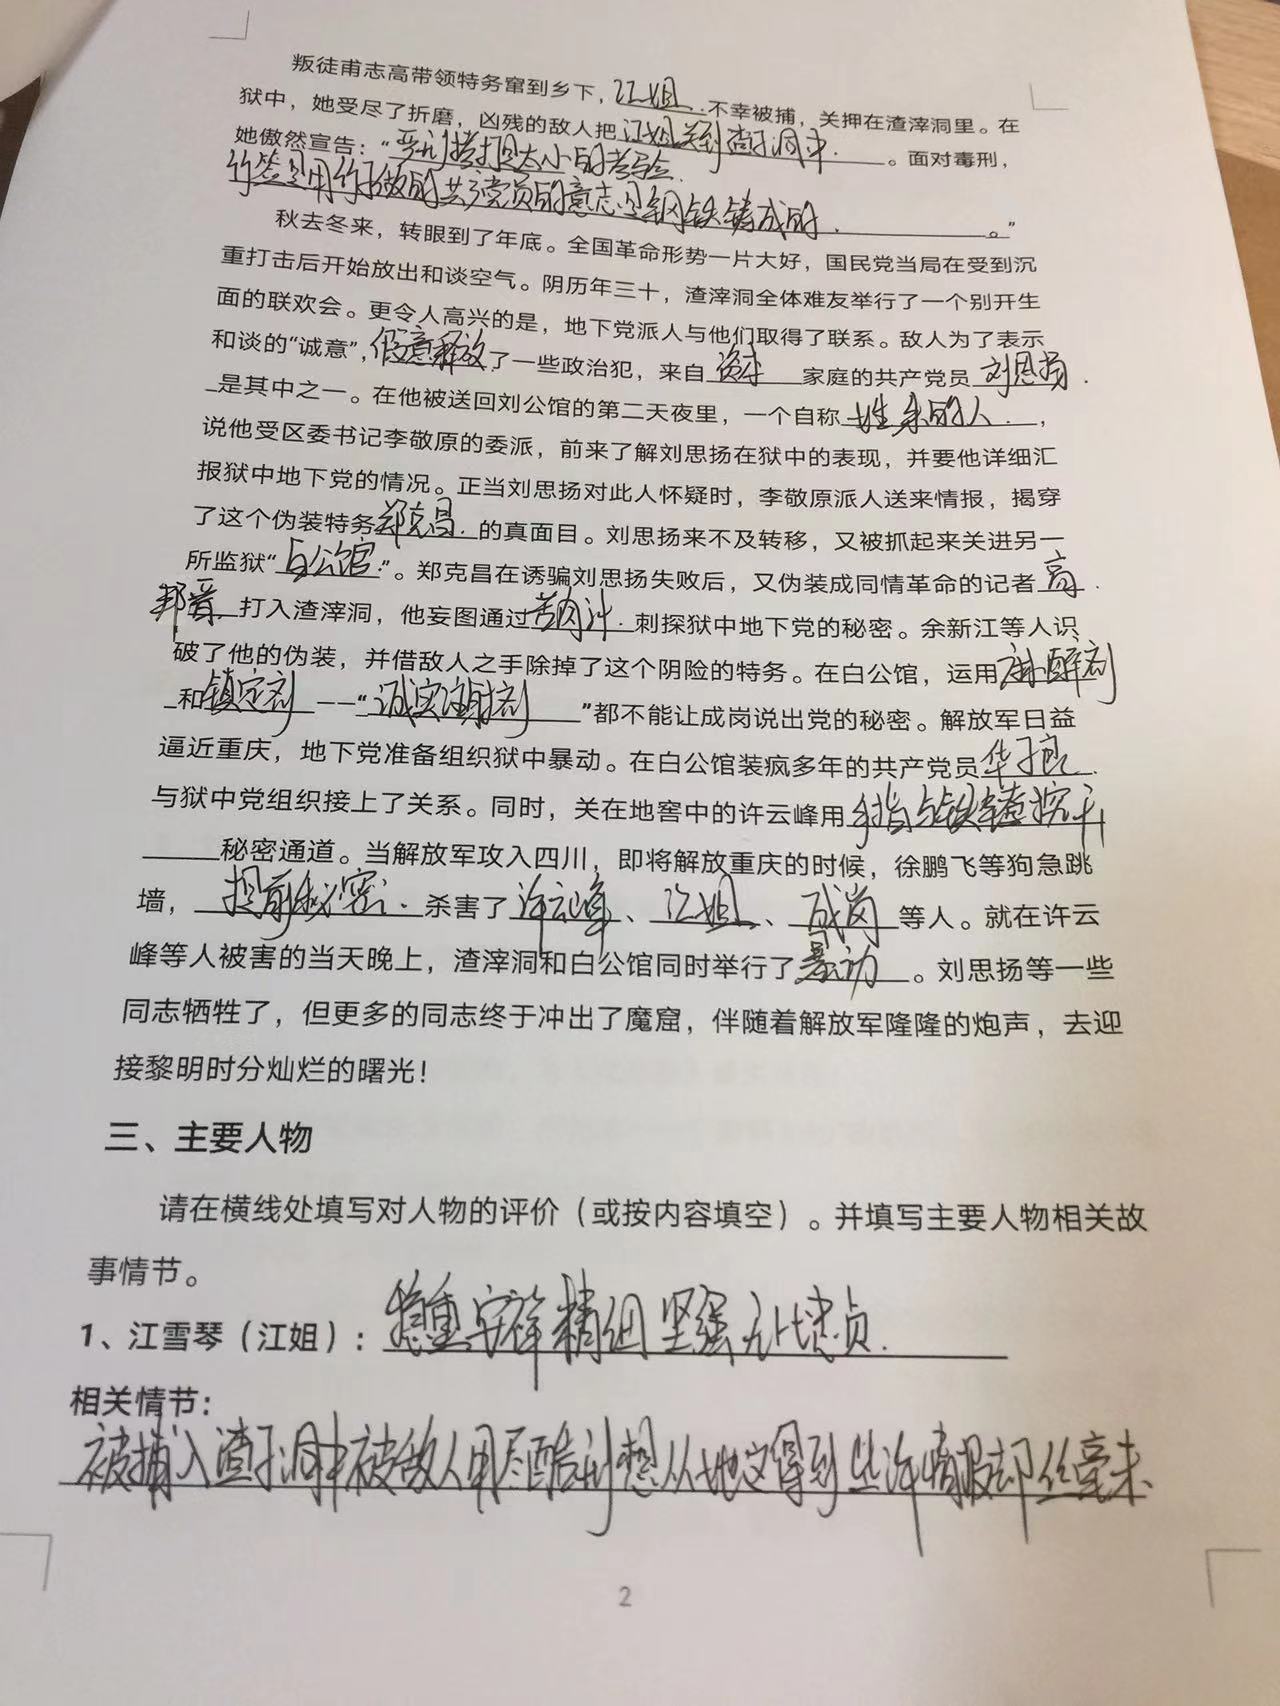 叛徒甫志高带领特务窜到乡下，江姐不幸被捕，关押在渣滓洞里。在
狱中，她受尽了折磨，凶残的敌人把江姐关到渣于洞中。面对毒刑，
她傲然宣告：“严刑拷打是太小的考验.
竹签是用竹子做的共产党员的意志是钢铁铸成的。”
秋去冬来，转眼到了年底。全国革命形势一片大好，国民党当局在受到沉
重打击后开始放出和谈空气。阴历年三十，渣滓洞全体难友举行了一个别开生
面的联欢会。更令人高兴的是，地下党派人与他们取得了联系。敌人为了表示
和谈的“诚意”，假意释放了一些政治犯，来自资本家庭的共产党员刘思扬
是其中之一。在他被送回刘公馆的第二天夜里，一个自称姓朱的人，
说他受区委书记李敬原的委派，前来了解刘思扬在狱中的表现，并要他详细汇
报狱中地下党的情况。正当刘思扬对此人怀疑时，李敬原派人送来情报，揭穿
了这个伪装特务郑克昌的真面目。刘思扬来不及转移，又被抓起来关进另一
所监狱“白公馆”。郑克昌在诱骗刘思扬失败后，又伪装成同情革命的记者高
邦晋打入渣滓洞，他妄图通过苦肉计刺探狱中地下党的秘密。余新江等人识
破了他的伪装，并借敌人之手除掉了这个阴险的特务。在白公馆，运用麻醉剂
和镇定剂——“诚实注射剂”都不能让成岗说出党的秘密。解放军日益
逼近重庆，地下党准备组织狱中暴动。在白公馆装疯多年的共产党员华子良
与狱中党组织接上了关系。同时，关在地窖中的许云峰用手指与铁镣挖开
秘密通道。当解放军攻入四川，即将解放重庆的时候，徐鹏飞等狗急跳
墙，提前秘密杀害了许云峰、江姐、成岗等人。就在许云
峰等人被害的当天晚上，渣滓洞和白公馆同时举行了暴动。刘思扬等一些
同志牺牲了，但更多的同志终于冲出了魔窟，伴随着解放军隆隆的炮声，去迎
接黎明时分灿烂的曙光！
三、主要人物
请在横线处填写对人物的评价（或按内容填空）。并填写主要人物相关故
事情节。
1、江雪琴（江姐）：稳重安祥精细坚强无比忠贞.
相关情节：
被捕入渣于洞中被敌人用尽酷刑想从她这得到些许情报却丝毫未
2